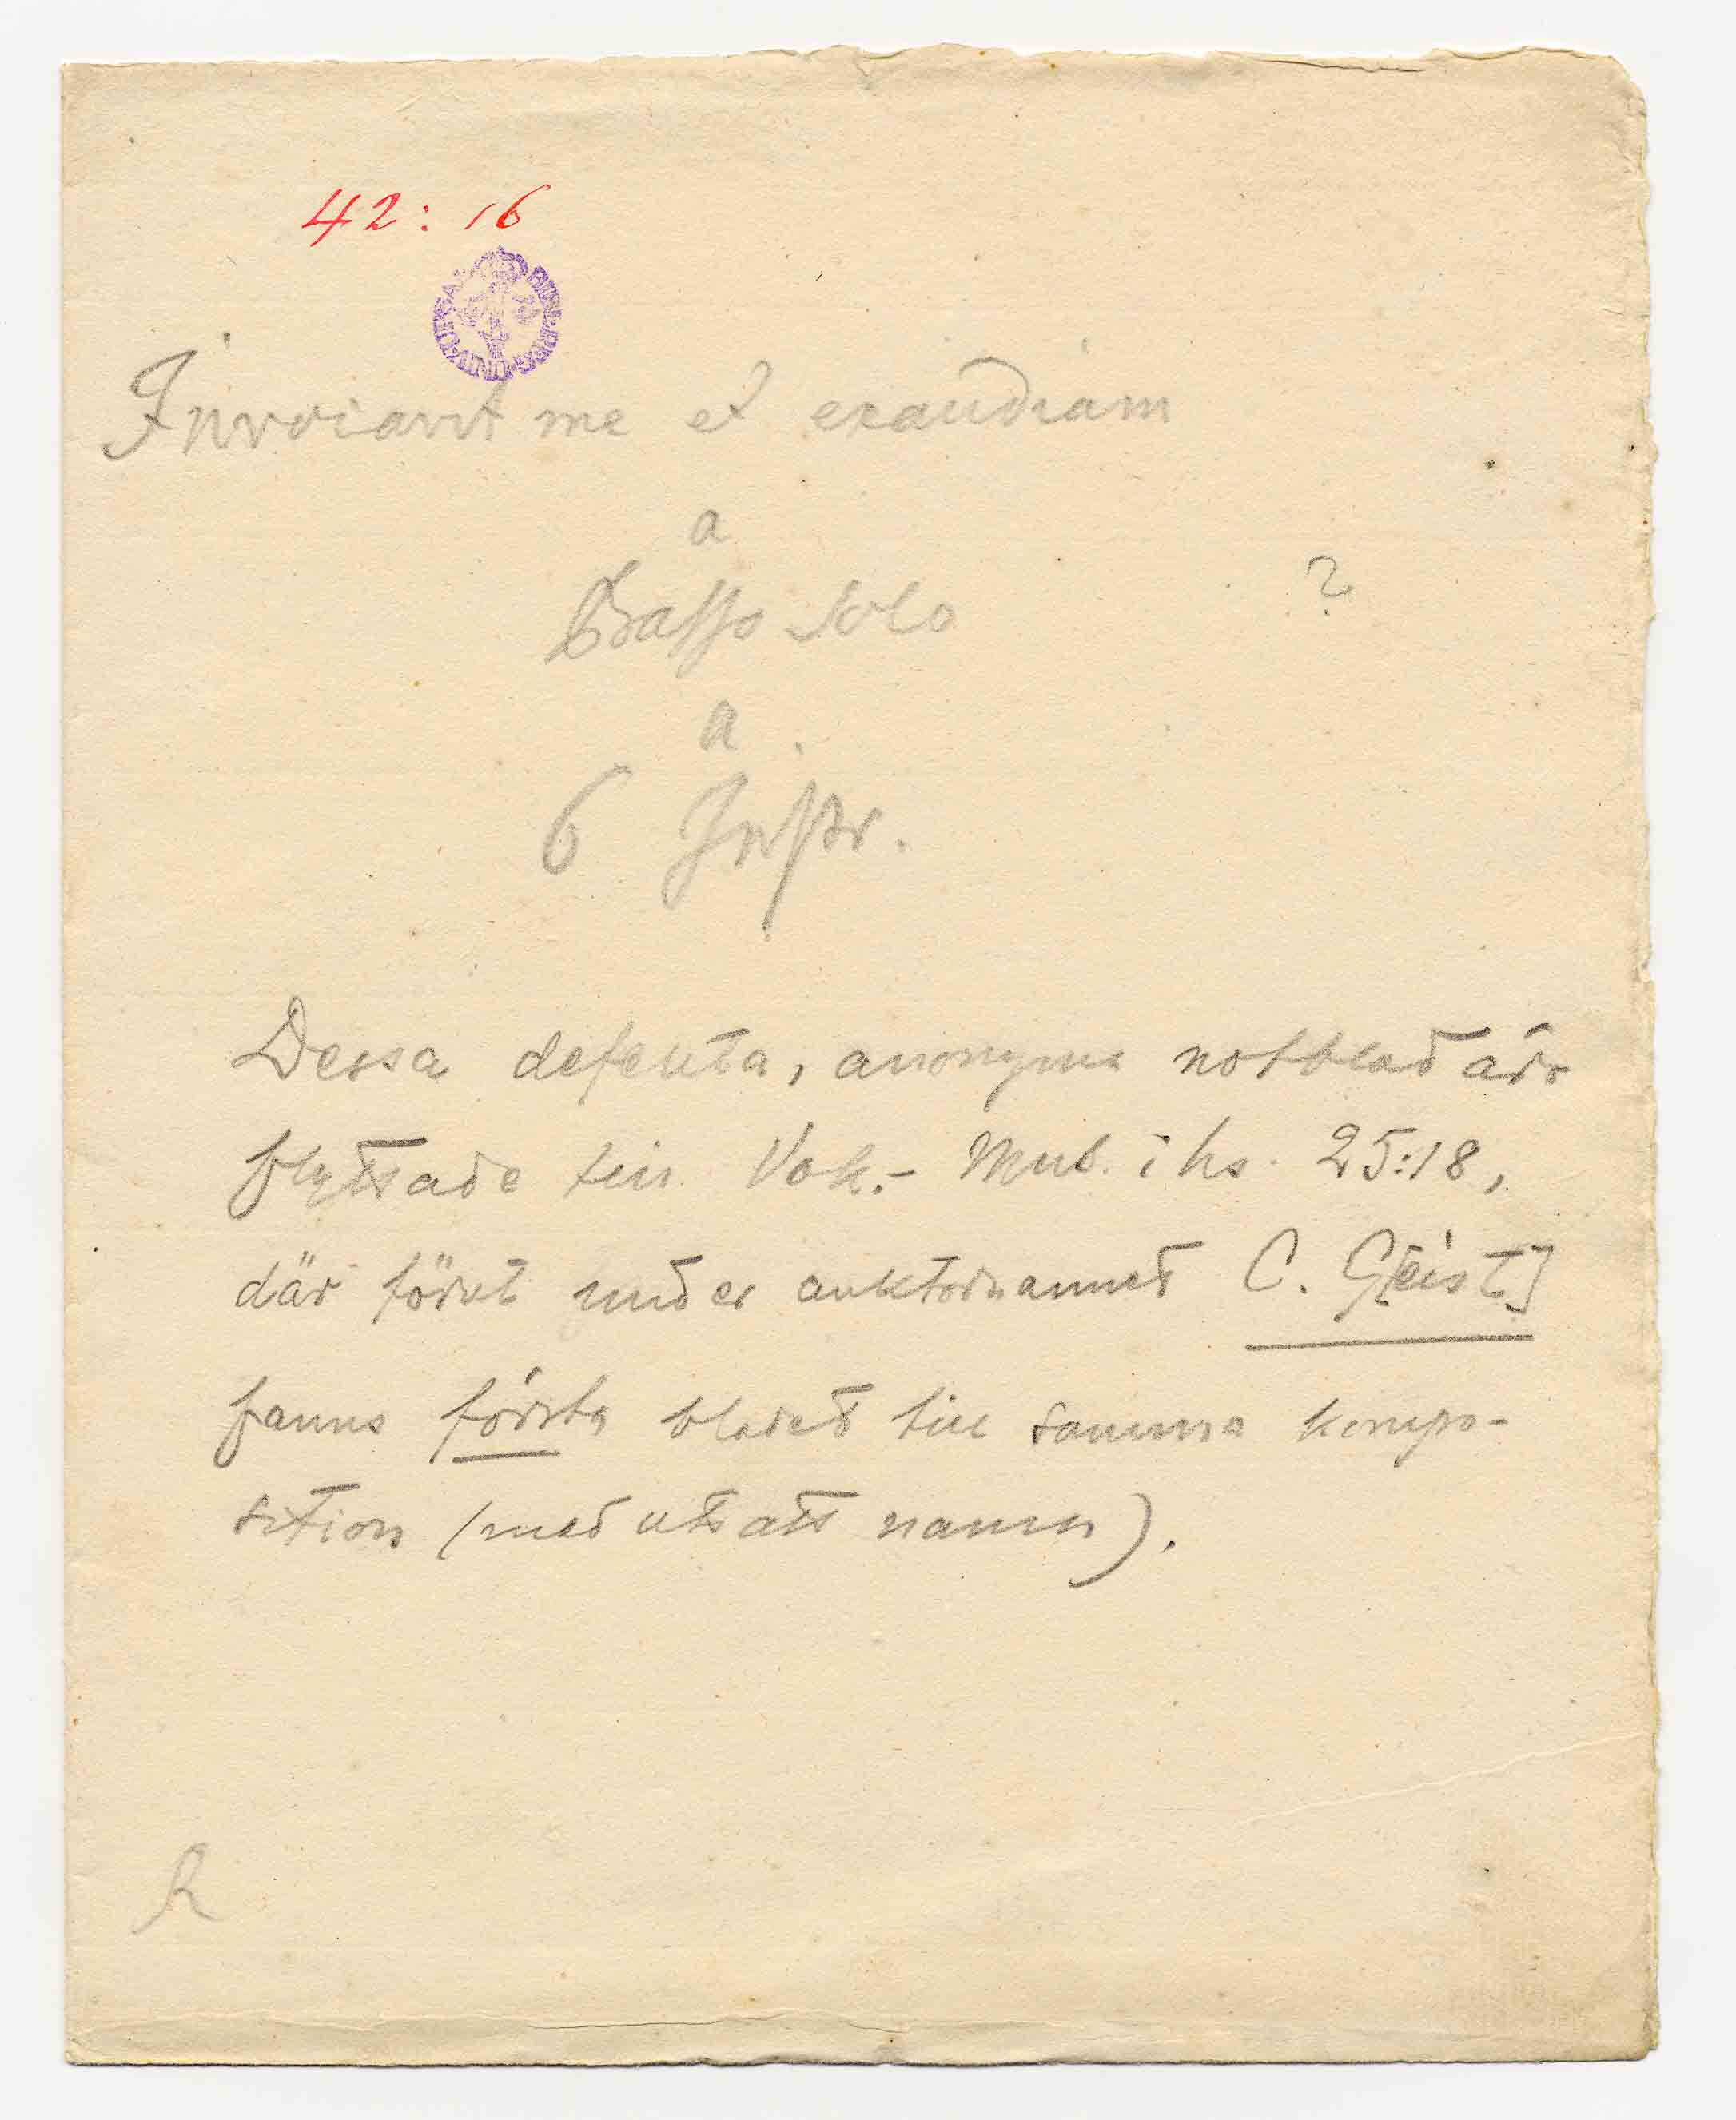 42:16
UNIV. UPSAL. BIBL. REG.
Invocavit me et exaudiam
a
Basso solo
?
a
6 Instr.
Dessa defekta, anonyma notblad äro
flyttade till Vok.- Mus. i hs. 25:18,
där förut under auktornamnet C. G[eist]
fanns första bladet till samma kompo-
sition (med utsatt namn).
R